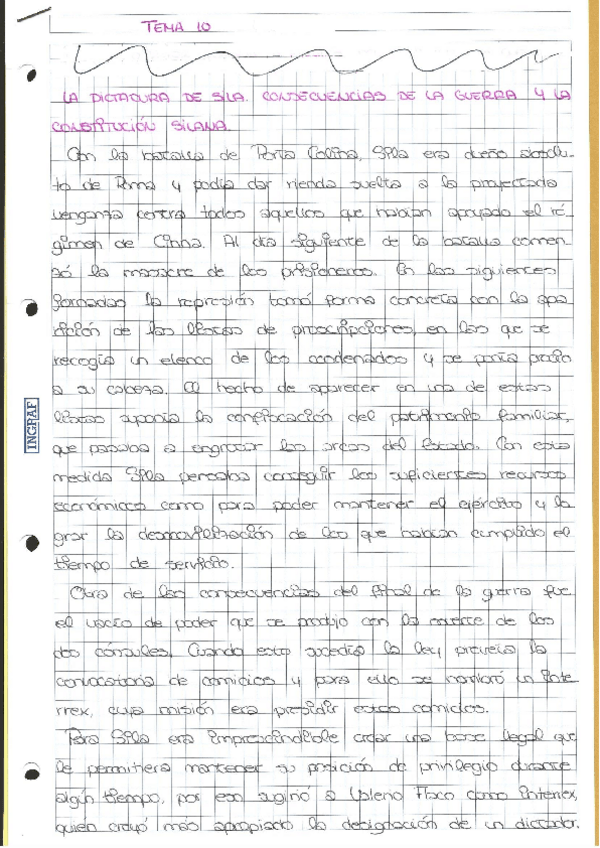 TEMA 10
LA DICTADURA DE SILA. CONSECUENCIAS DE LA GUERRA Y LA
CONSTITUCIÓN SILANA.
Con la batalla de Porta Collina, Sila era dueño absolu-
to de Roma y podía dar rienda suelta a la proyectada
venganza contra todos aquellos que habían apoyado el ré-
gimen de Cinna. Al día siguiente de la batalla comen
zó la masacre de los prisioneros. En las siguientes
jornadas la represión tomó forma concreta con la apa
rición de las listas de proscripciones, en las que se
recogía un elenco de los condenados y se ponía precio
a su cabeza. El hecho de aparecer en una de estas
listas suponía la confiscación del patrimonio familiar,
que pasaba a engrosar las arcas del Estado. Con esta
medida Sila pensaba conseguir los suficientes recursos
económicos como para poder mantener el ejército y lo
grar la desmovilización de los que habían cumplido el
tiempo de servicio.
Otra de las consecuencias del final de la guerra fue
el vacío de poder que se produjo con la muerte de los
dos cónsules. Cuando esto sucedía la ley preveía la
convocatoria de comicios y para ello se nombró un Inte
rrex, cuya misión era presidir estos comicios.
Para Sila era imprescindible crear una base legal que
le permitiera mantener su posición de privilegio durante
algún tiempo, por eso sugirió a Valerio Flaco como Interrex,
quien creyó más apropiado la designación de un dictador.
INGRAF